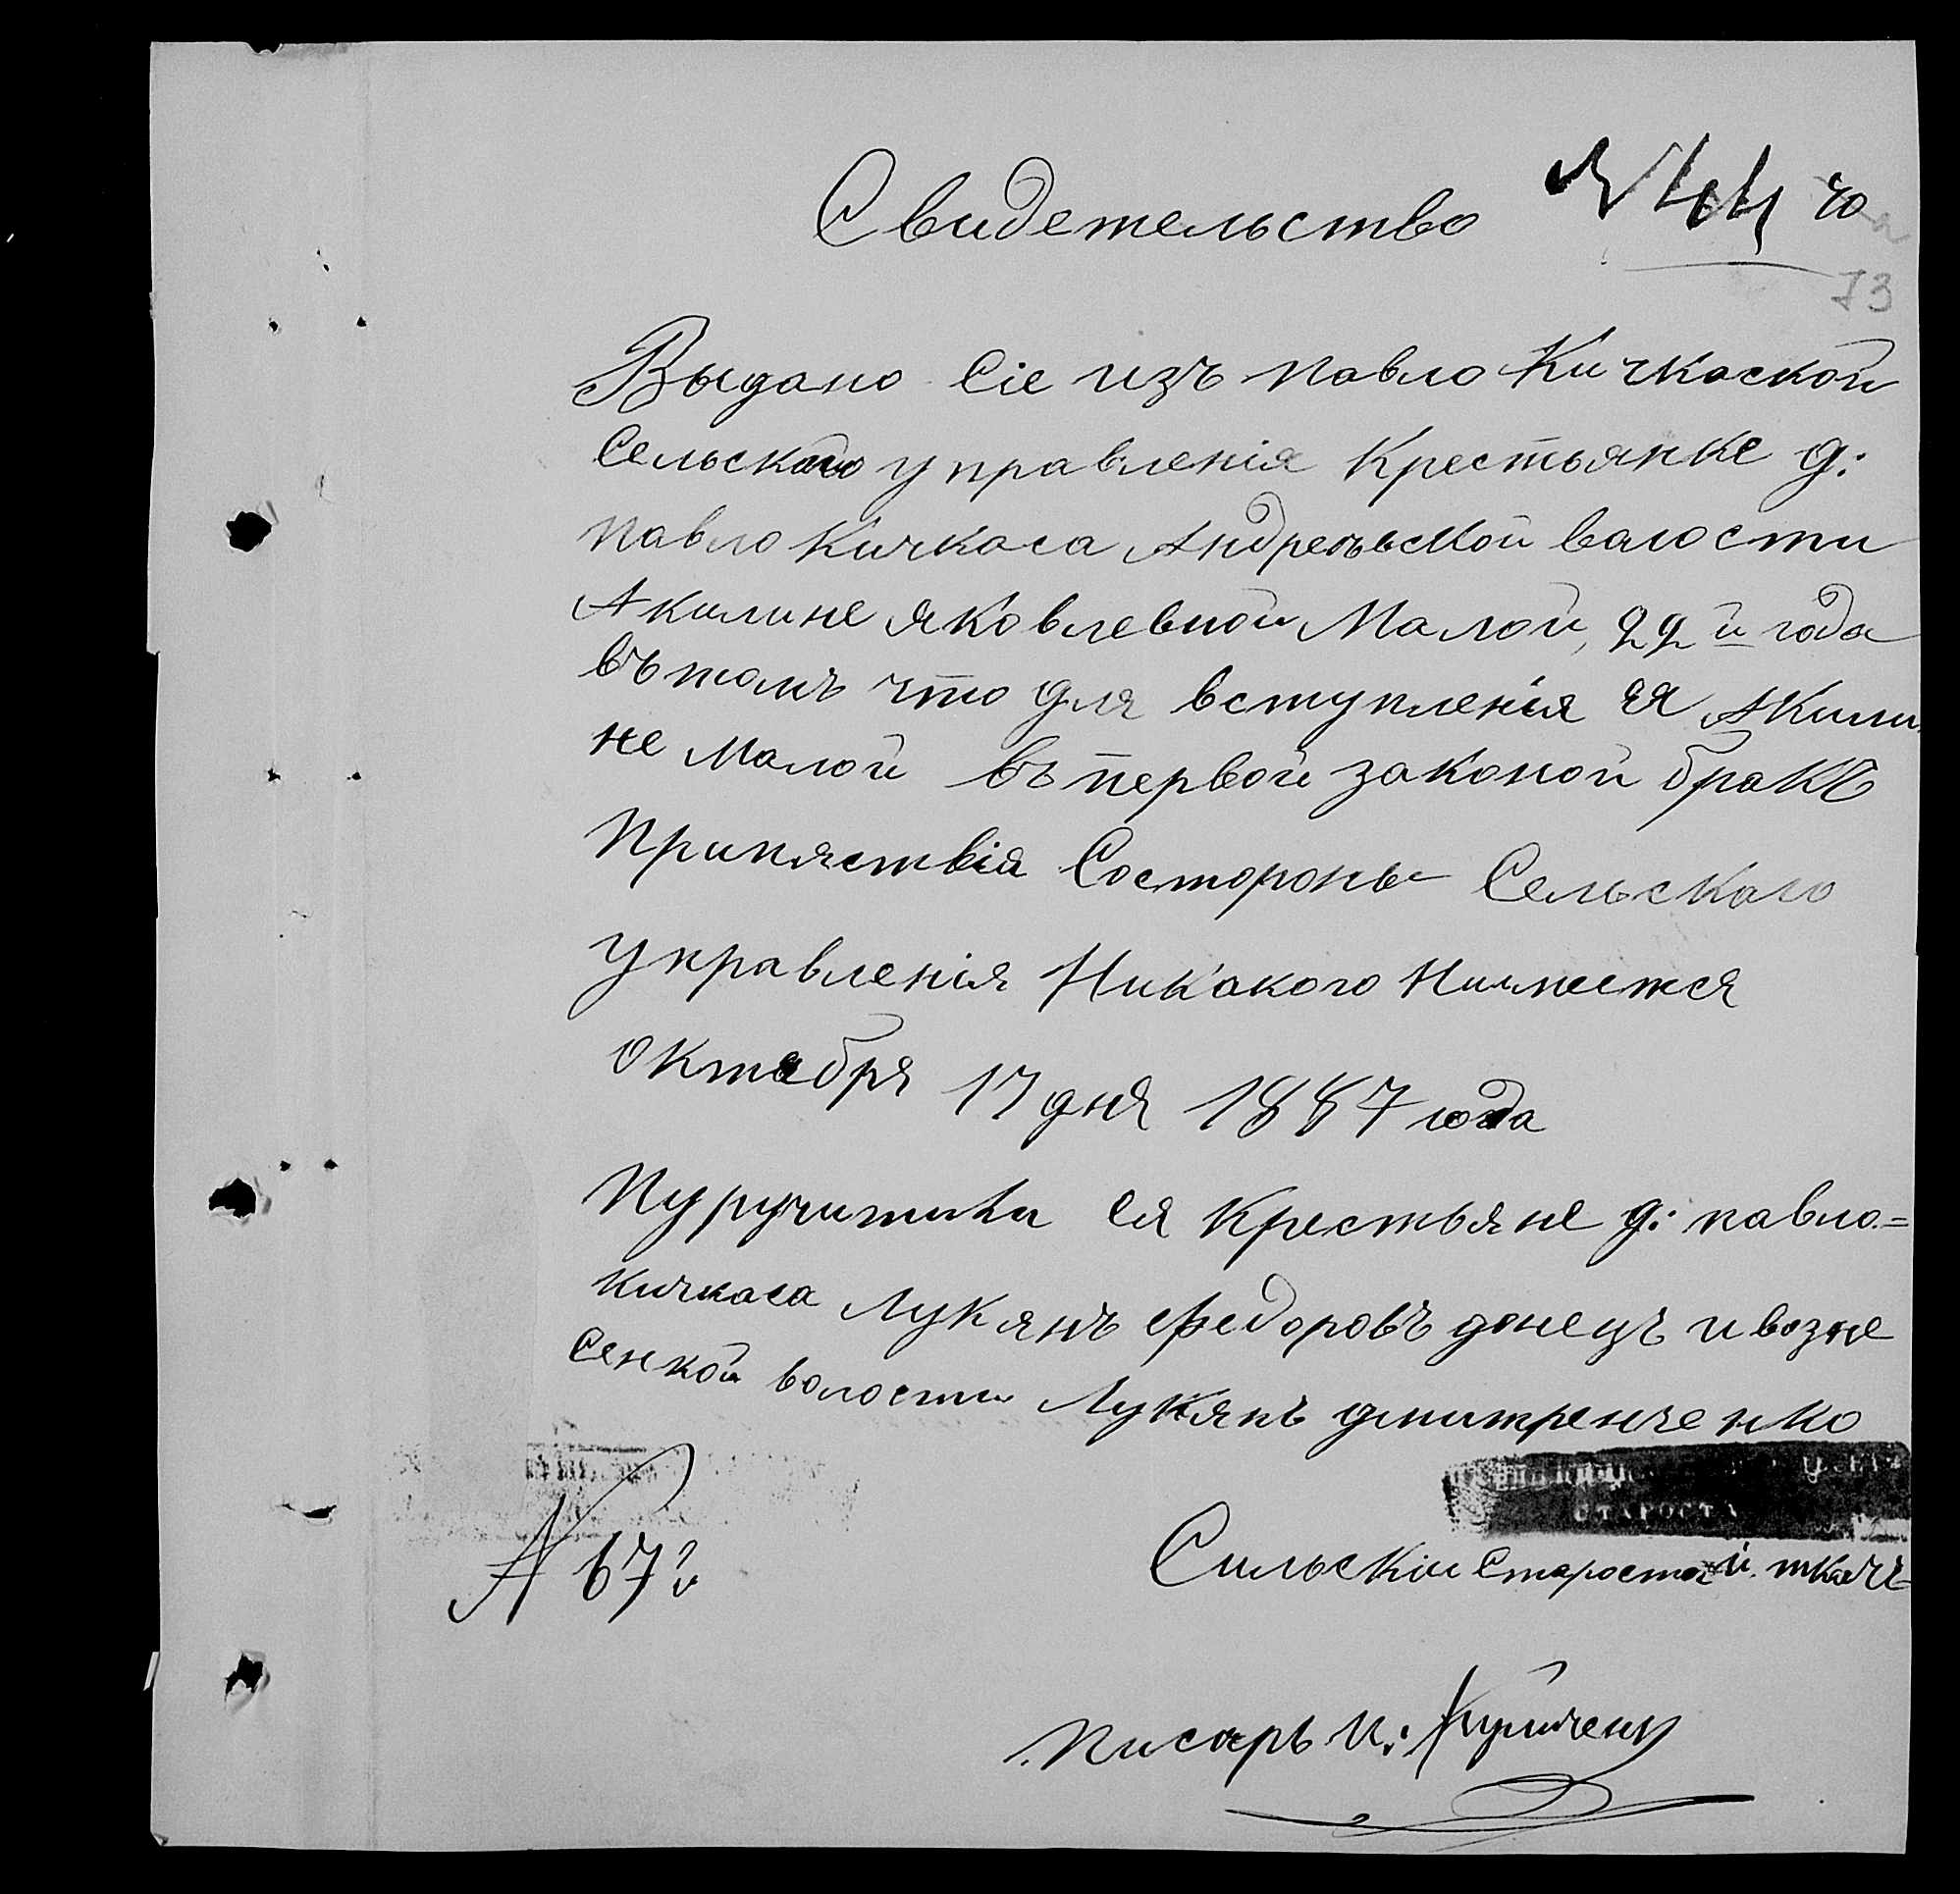 Свидетельство № 44
73
Выдано Сіе изъ павло Кичкаской
Сельскаго управленія Крестьянке д:
павло Кичкаса Андреевьской валости
Акилине Яковлевной Малой, 22й года
въ томъ что для вступленія ея Акили
не Малой въ первой законой бракъ
Припяствія Состороны Сельскаго
управленія Никакого Ниимеется
Октября 17 дня 1887 года
Пуручители ея Крестьяне д: павло=
кичкаса Лукянъ Федоровъ донецъ и возне
сенкой волости Лукянъ дмитренченко
СТАРОСТА
№ 67й
Сильскій Староста И. ткачъ
писарь И: